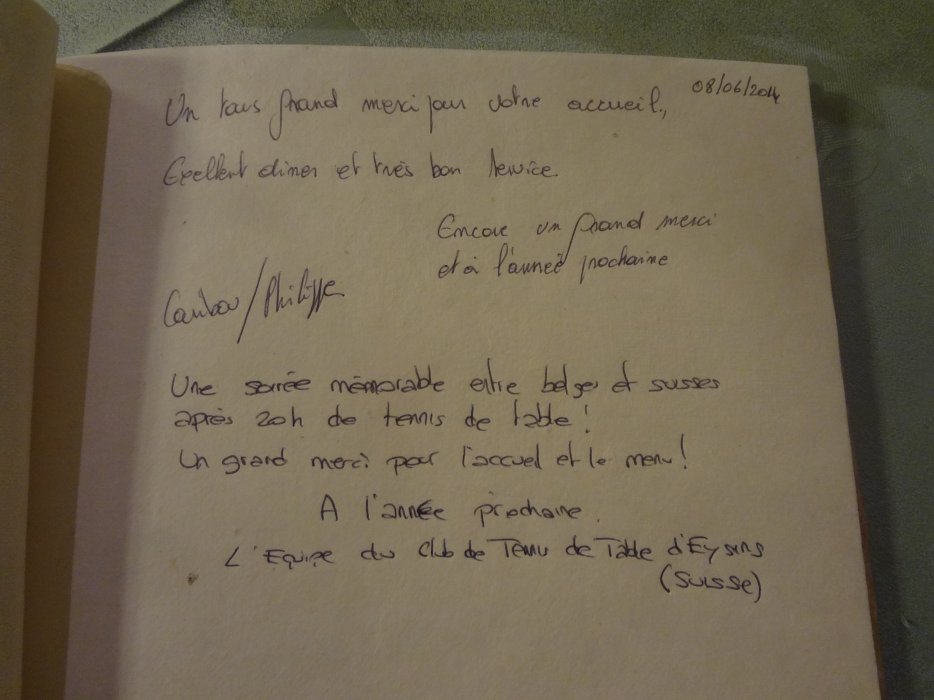 08/06/2014
Un tous grand merci pour votre accueil,
Exellent diner et très bon service.
Encore un grand merci
et à l'année prochaine
/Philippe
Une soirée mémorable entre belges et suisses
après 20h de tennis de table !
Un grand merci pour l'accueil et le menu !
A l'année prochaine.
L'Equipe du Club de Tennis de Table d'Eysins
(Suisse)